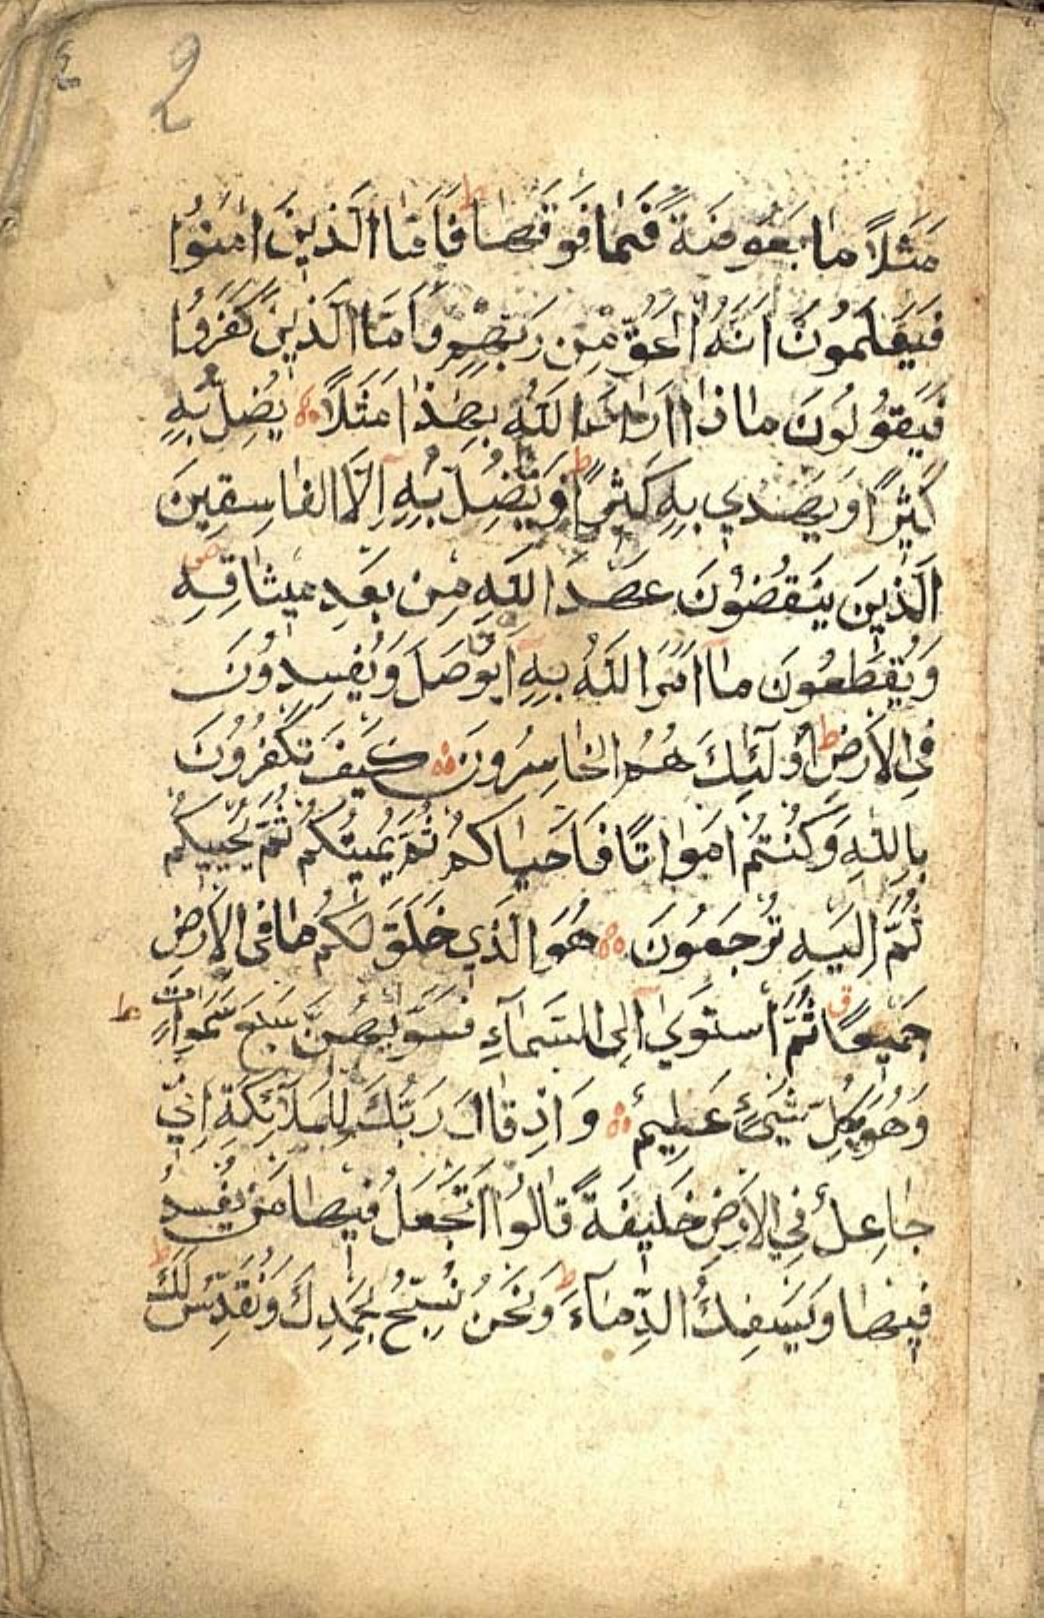 2
مَثَلاً ماٰ بَعَوضَةً فَمٰا فَوقَهٰا ط فَاَمّٰا الَّذينَ اٰمَنوُا
فَيَعَلَمُونَ اَنَّهُ الحَقُّ مِن رَبِّهِمِ وَاَمّٰا الَّذينَ كَفَرَوُا
فَيَقوُلوُنَ ماٰذاٰ اَراٰدَ اللهُ بِهٰذاٰ مَثَلاً يُضِلُّ بِهِ
كَثيٖراً وَيَهَديٖ بِهِ كَثيٖراً ط وَمٰا يُضِلُّ بِهِ اِلّاَ الفاٰسِقينَ
الَّذينَ يَنَقُضُونَ عَهَدَ اللهِ مِن بَعَدِ ميٖثاٰقِهِ ص
وَيَقَطَعُونَ ماٰ اَمَرَ اللهُ بِهِ اَن يوُصَلَ وَيُفسِدوُنَ
فِي الاَرَضِ ط اُولٰئِكَ هُمُ الخاٰسِرُونَ كَيَفَ تَكَفُرُونَ
بِاللهِ وَكُنتُم اَمَواٰتاً فَاَحياٰكُم ثُمَّ يُميتُكُم ثُمَّ يُحَييكُم
ثُمَّ اِلَيَهِ تُرجَعُونَ هُوَ الَّذي خَلَقَ لَكُم ماٰ فِي الاَرَضِ
جَميٖعاً ق ثُمَّ اَستَوىٰ اِلَى السَّمآٰءِ فَسَوّيٰهُنَّ سَبَعَ سَمٰواٰتٍ ط
وَهُوَ بِكُلِّ شَيَئٍ عَليٖمٌ وَاِذ قاٰلَ رَبُّكَ لِلمَلآئِكَةِ اِنّي
جاٰعِلٌ فِي الاَرَضِ خَليٖفَةً قاٰلوُا اَتَجَعَلُ فيٖهاٰ مَن يُفسِدُ
فيٖهاٰ وَيَسفِكُ الدِّمآٰءَ ط وَنَحَنُ نُسَبِّحُ بِحَمَدِكَ وَنُقَدِّسُ لَكَ ط